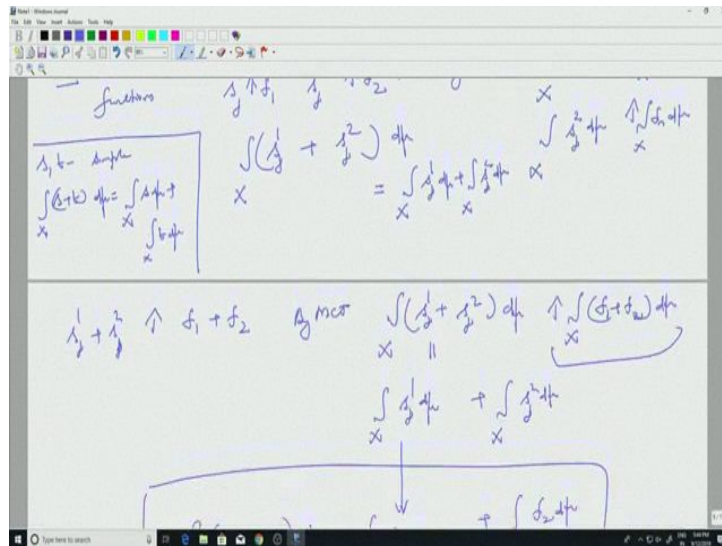 Note1 - Windows Journal
File Edit View Insert Actions Tools Help
functions s_j^1 ↑ f_1 s_j^2 ↑ f_2
s, t – simple
∫_X (s+t) dμ = ∫_X s dμ + ∫_X t dμ
∫_X (s_j^1 + s_j^2) dμ
= ∫_X s_j^1 dμ + ∫_X s_j^2 dμ
∫_X s_j^2 dμ ↑ ∫_X f_2 dμ
s_j^1 + s_j^2 ↑ f_1 + f_2 By MCT ∫_X (s_j^1 + s_j^2) dμ ↑ ∫_X (f_1 + f_2) dμ
||
∫_X s_j^1 dμ + ∫_X s_j^2 dμ
↓
+ ∫ f_2 dμ
Type here to search
5:48 PM
9/12/2018